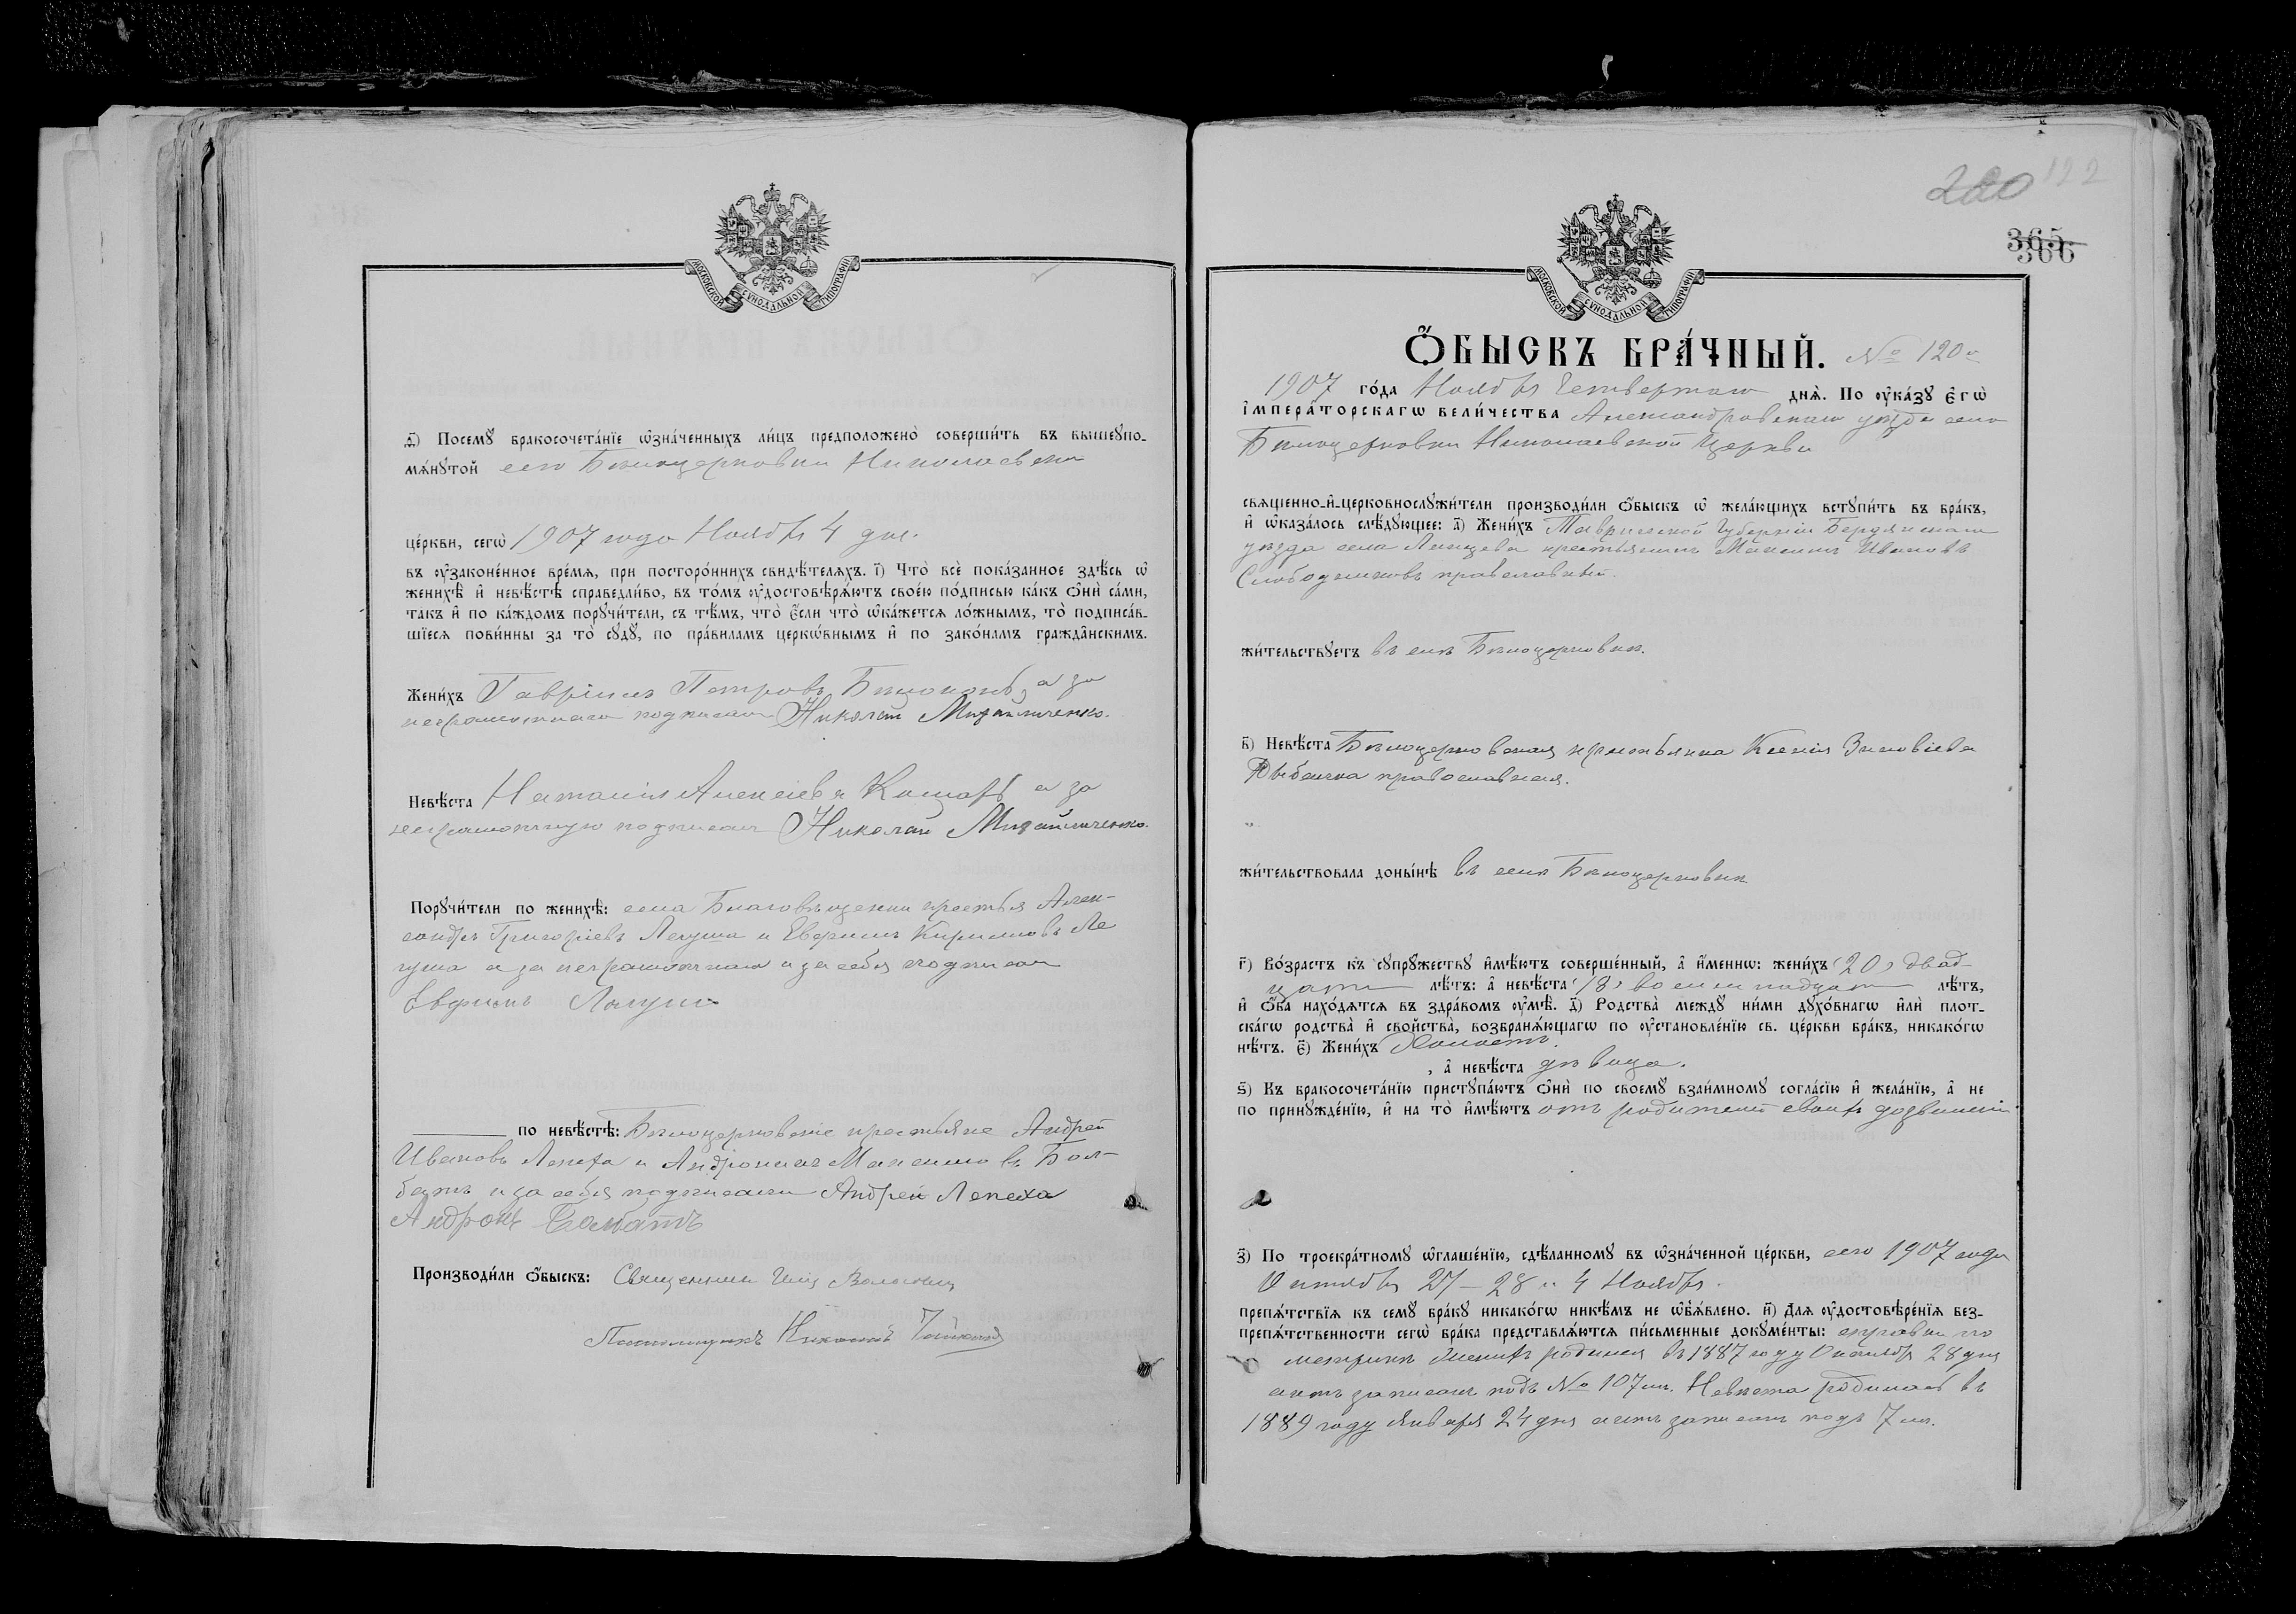 МОСКОВСКОЙ СУНОДАЛЬНОЙ ТИПОГРАФІИ
д҃і) Посемꙋ бракосочета́нїе ѡ҆зна́ченныхъ ли́цъ предположено̀ соверши́ть въ вышеꙋпо-
мѧ́нꙋтой сего Бѣлоцерковки Николаевской
це́ркви, сегѡ̀ 1907 года Ноября 4 дня.
въ ᲂу҆законе́нное вре́мѧ, при посторо́ннихъ свидѣ́телѧхъ. і҃) Что̀ всѐ пока́занное здѣ́сь ѡ҆
женихѣ̀ и҆ невѣ́стѣ справедли́во, въ то́мъ ᲂу҆достовѣрѧ́ютъ свое́ю по́дписью ка́къ ѻ҆нѝ са́ми,
та́къ и҆ по ка́ждомъ порꙋчи́тели, съ тѣ́мъ, что̀ є҆́сли что̀ ѡ҆ка́жетсѧ ло́жнымъ, то̀ подписа́в-
шїесѧ пови́нны за то̀ сꙋдꙋ̀, по пра́виламъ церко́внымъ и҆ по зако́намъ гражда́нскимъ.
Жени́хъ Гавріилъ Петровъ а за
неграмотнаго подписалъ Николай Михайличенко.
Невѣ́ста Наталія Алексіева а за
неграмотную подписалъ Николай Михайличенко.
Порꙋчи́тели по женихѣ̀: села Благовѣщенки крестья Алек-
сандръ Григоріевъ Легуша и Евфимъ Кириловъ Ле
гуша а за неграмотнаго и за себя подписалъ
Евфимъ
по невѣ́стѣ: Бѣлоцерковскіе крестьяне Андрей
Ивановъ Лепеха и Андроникъ Максимовъ Бол-
батъ и за себя подписали Андрей Лепеха
Андронъ Болбатъ
Производи́ли ѻ҆́быскъ: Священникъ
Псаломщикъ Николай
220 122
365.
366
МОСКОВСКОЙ СУНОДАЛЬНОЙ ТИПОГРАФІИ
Ѻ҆́БЫСКЪ БРА́ЧНЫЙ. № 120й
1907 го́да Ноября Четвертаго днѧ̀. По ᲂу҆ка́зꙋ Є҆гѡ̀
І҆мпера́торскагѡ вели́чества Александровскаго уѣзда села
Бѣлоцерковки Николаевской Церкви
свѧщенно-и҆-церковнослꙋжи́тели производи́ли ѻ҆́быскъ ѡ҆ жела́ющихъ встꙋпи́ть въ бра́къ,
и҆ ѡ҆каза́лось слѣ́дꙋющее: а҃) Жени́хъ Таврической Губерніи Бердянскаго
уѣзда села крестьянинъ Максимъ Ивановъ
Слободяниковъ православный.
жи́тельствꙋетъ въ селѣ Бѣлоцерковкѣ.
в҃) Невѣ́ста Бѣлоцерковская крестьянка Ксенія Зиновіева
православная.
жи́тельствовала доны́нѣ въ селѣ Бѣлоцерковкѣ
г҃) Во́зрастъ къ сꙋпрꙋ́жествꙋ и҆мѣ́ютъ соверше́нный, а҆ и҆́менно: жени́хъ (20) двад-
цати лѣ́тъ: а҆ невѣ́ста (18) восемнадцати лѣ́тъ,
и҆ ѻ҆́ба нахо́дѧтсѧ въ здра́вомъ ᲂу҆мѣ̀. д҃) Родства̀ междꙋ ни́ми дꙋхо́внагѡ и҆лѝ плот-
ска́гѡ родства̀ и҆ свойства̀, возбранѧ́ющагѡ по ᲂу҆становле́нїю св. це́ркви бра́къ, никако́гѡ
нѣ́тъ. є҃) Жени́хъ Холостъ.
, а҆ невѣ́ста дѣвица.
ѕ҃) Къ бракосочета́нїю пристꙋпа́ютъ ѻ҆нѝ по своемꙋ̀ взаи́мномꙋ согла́сїю и҆ жела́нїю, а҆ не
по принꙋжде́нїю, и҆ на то̀ и҆мѣ́ютъ отъ родителей своихъ дозволеніе.
з҃) По троекра́тномꙋ ѡ҆глаше́нїю, сдѣ́ланномꙋ въ ѡ҆зна́ченной це́ркви, сего 1907 года
Октября 27 – 28 и 4 Ноября.
препѧ́тствїѧ къ семꙋ̀ бра́кꙋ никако́гѡ никѣ́мъ не ѡ҆бѧ́влено. и҃) Длѧ ᲂу҆достовѣре́нїѧ без-
препѧ́тственности сегѡ̀ бра́ка представлѧ́ютсѧ пи́сьменные докꙋме́нты: справки по
метрикѣ Женихъ родился въ 1887 году Октября 28 дня
актъ записанъ подъ № 107 м. Невѣста родилась въ
1889 году Января 24 дня актъ записанъ подъ 7 м.